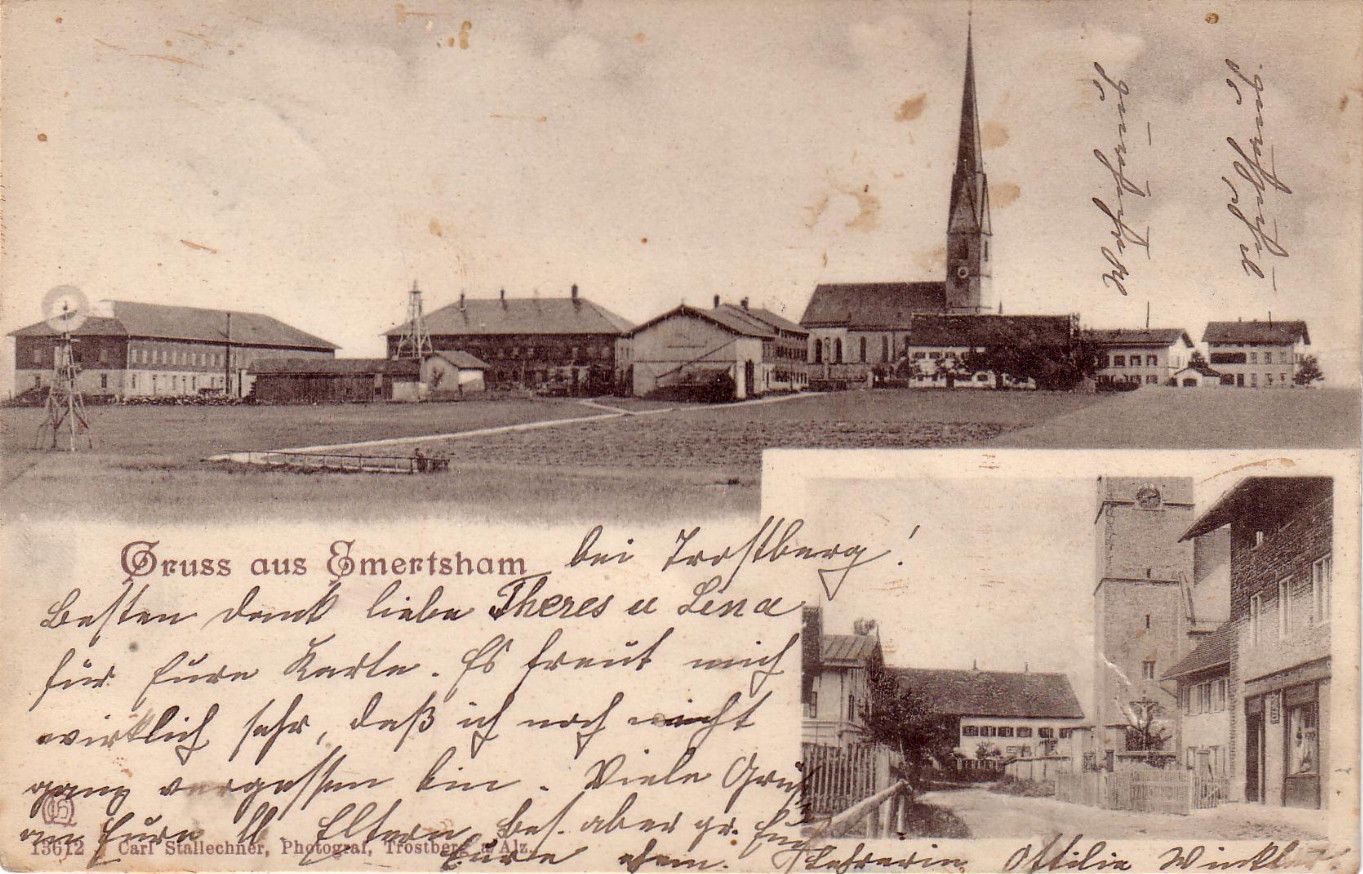 Gruss aus Emertsham bei Trostberg!
Besten Dank liebe Theres u Lena
für Eure Karte. Es freut mich
wirklich sehr, daß ich noch nicht
ganz vergessen bin. Viele Grüße
an Eure lb Eltern bes. aber gr. Euch
Eure ehem. Lehrerin Ottilie Winkler
13612 Carl Stallechner, Photograf, Trostberg a. Alz.